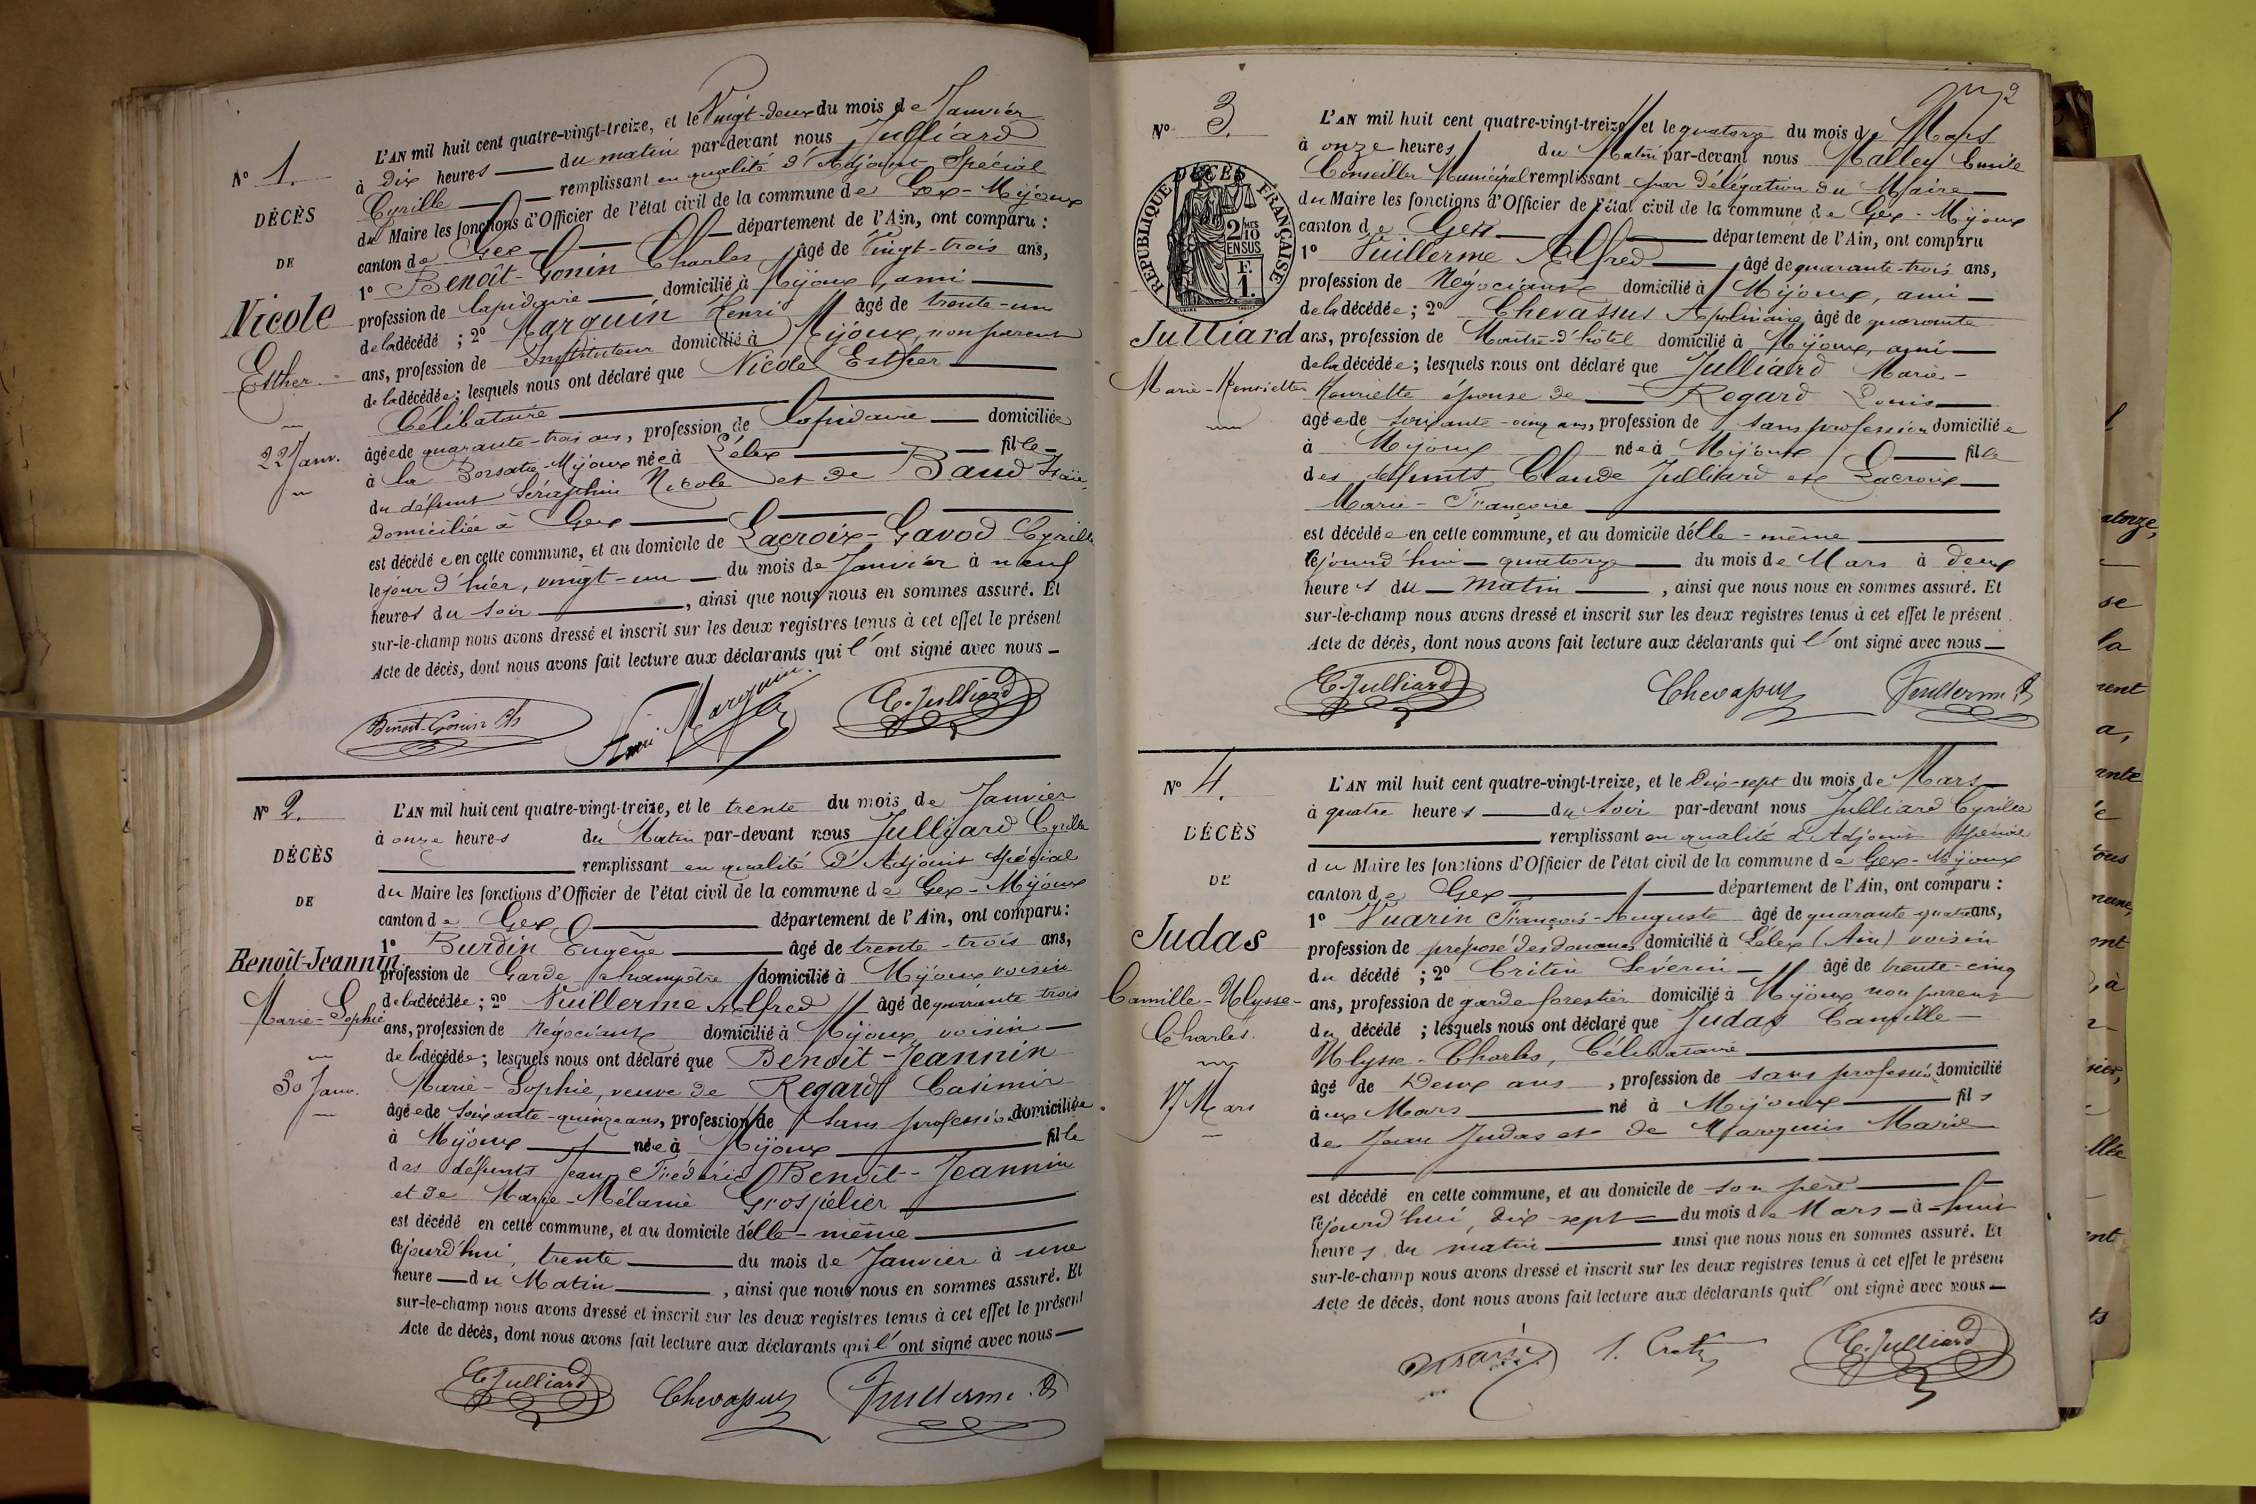 N° 1.
DÉCÈS
DE
Nicole
Esther
22 Janv.
L'AN mil huit cent quatre-vingt-treize, et le Vingt-deux du mois de Janvier
à dix heures du matin par-devant nous Julliard
Cyrille remplissant en qualité d'Adjoint Spécial
du Maire les fonctions d'Officier de l'état civil de la commune de Gex-Mijoux
canton de Gex département de l'Ain, ont comparu :
1° Benoît-Gonin Charles, âgé de Vingt-trois ans,
profession de lapidaire domicilié à Mijoux, ami
de la décédé ; 2° Marquin Henri âgé de trente-un
ans, profession de Instituteur domicilié à Mijoux, non parent
de la décédée ; lesquels nous ont déclaré que Nicole Esther
Célibataire
âgée de quarante-trois ans, profession de lapidaire domiciliée
à la Mijoux née à Lélex fille
du défunt Séraphin Nicole et de Baud
domiciliée à Gex
est décédée en cette commune, et au domicile de Lacroix-Gavod Cyrille
le jour d'hier, vingt-un du mois de Janvier à neuf
heures du soir, ainsi que nous nous en sommes assuré. Et
sur-le-champ nous avons dressé et inscrit sur les deux registres tenus à cet effet le présent
Acte de décès, dont nous avons fait lecture aux déclarants qui l'ont signé avec nous
Benoît-Gonin Ch
Henri Marquin
C. Julliard
N° 2.
DÉCÈS
DE
Benoît-Jeannin
Marie-Sophie
30 Janv.
L'AN mil huit cent quatre-vingt-treize, et le trente du mois de Janvier
à onze heures du Matin par-devant nous Julliard Cyrille
remplissant en qualité d'Adjoint Spécial
du Maire les fonctions d'Officier de l'état civil de la commune de Gex-Mijoux
canton de Gex département de l'Ain, ont comparu :
1° Burdin Eugène âgé de trente-trois ans,
profession de Garde champêtre domicilié à Mijoux voisin
de la décédée ; 2° Vuillerme Alfred âgé de quarante trois
ans, profession de négociant domicilié à Mijoux, voisin
de la décédée ; lesquels nous ont déclaré que Benoît-Jeannin
Marie-Sophie, veuve de Regard Casimir
âgée de soixante-quinze ans, profession de sans profession domiciliée
à Mijoux née à Mijoux fille
des défunts Jean Frédéric Benoît-Jeannin
et de Marie-Mélanie Grospélier
est décédé en cette commune, et au domicile d'elle-même
cejourd'hui, trente du mois de Janvier à une
heure du Matin, ainsi que nous nous en sommes assuré. Et
sur-le-champ nous avons dressé et inscrit sur les deux registres tenus à cet effet le présent
Acte de décès, dont nous avons fait lecture aux déclarants qui l'ont signé avec nous
C. Julliard
Chevassus
Vuillerme A
2
N° 3.
DÉCÈS
RÉPUBLIQUE FRANÇAISE
2/10
EN SUS
F.
1.
Julliard
Marie-Henriette
L'AN mil huit cent quatre-vingt-treize et le quatorze du mois de Mars
à onze heures du Matin par-devant nous Malley Emile
Conseiller Municipal remplissant par délégation du Maire
du Maire les fonctions d'Officier de l'état civil de la commune de Gex-Mijoux
canton de Gex département de l'Ain, ont comparu
1° Vuillerme Alfred, âgé de quarante-trois ans,
profession de Négociant domicilié à Mijoux, ami
de la décédée ; 2° Chevassus Apolinaire âgé de quarante
ans, profession de Maître-d'hôtel domicilié à Mijoux, ami
de la décédée ; lesquels nous ont déclaré que Julliard Marie-
Henriette épouse de Regard Louis
âgée de soixante-cinq ans, profession de sans profession domiciliée
à Mijoux née à Mijoux fille
des défunts Claude Julliard et Lacroix
Marie-Françoise
est décédée en cette commune, et au domicile d'elle-même
cejourd'hui quatorze du mois de Mars à deux
heures du matin, ainsi que nous nous en sommes assuré. Et
sur-le-champ nous avons dressé et inscrit sur les deux registres tenus à cet effet le présent
Acte de décès, dont nous avons fait lecture aux déclarants qui l'ont signé avec nous
C. Julliard
Chevassus
Vuillerme A
N° 4.
DÉCÈS
DE
Judas
Camille-Ulysse-
Charles.
17 Mars
L'AN mil huit cent quatre-vingt-treize, et le Dix-sept du mois de Mars
à quatre heures du Soir par-devant nous Julliard Cyrille
remplissant en qualité d'Adjoint Spécial
du Maire les fonctions d'Officier de l'état civil de la commune de Gex-Mijoux
canton de Gex département de l'Ain, ont comparu :
1° Vuarin François-Auguste âgé de quarante-quatre ans,
profession de préposé des douanes domicilié à Lélex (Ain) voisin
du décédé ; 2° Critin Séverin âgé de trente-cinq
ans, profession de garde forestier domicilié à Mijoux non parent
du décédé ; lesquels nous ont déclaré que Judas Camille
Ulysse-Charles, Célibataire
âgé de Deux ans, profession de sans profession domicilié
à né à Mijoux fils
de Jean Judas et de Marquis Marie
est décédé en cette commune, et au domicile de son père
cejourd'hui, dix-sept du mois de Mars à huit
heures du matin ainsi que nous nous en sommes assuré. Et
sur-le-champ nous avons dressé et inscrit sur les deux registres tenus à cet effet le présent
Acte de décès, dont nous avons fait lecture aux déclarants qui l'ont signé avec nous
C. Julliard